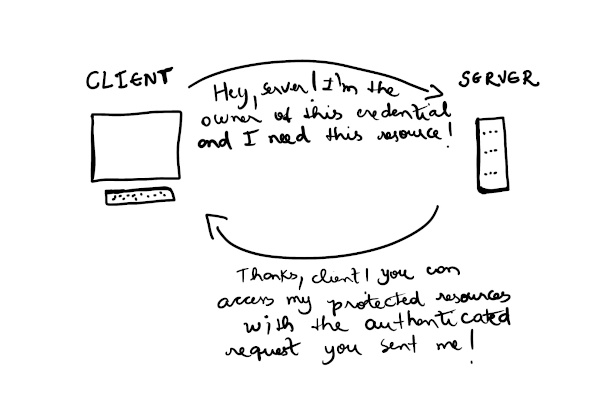 CLIENT
SERVER
Hey, server! I'm the
owner of this credential
and I need this resource!
Thanks, client! you can
access my protected resources
with the authenticated
request you sent me!